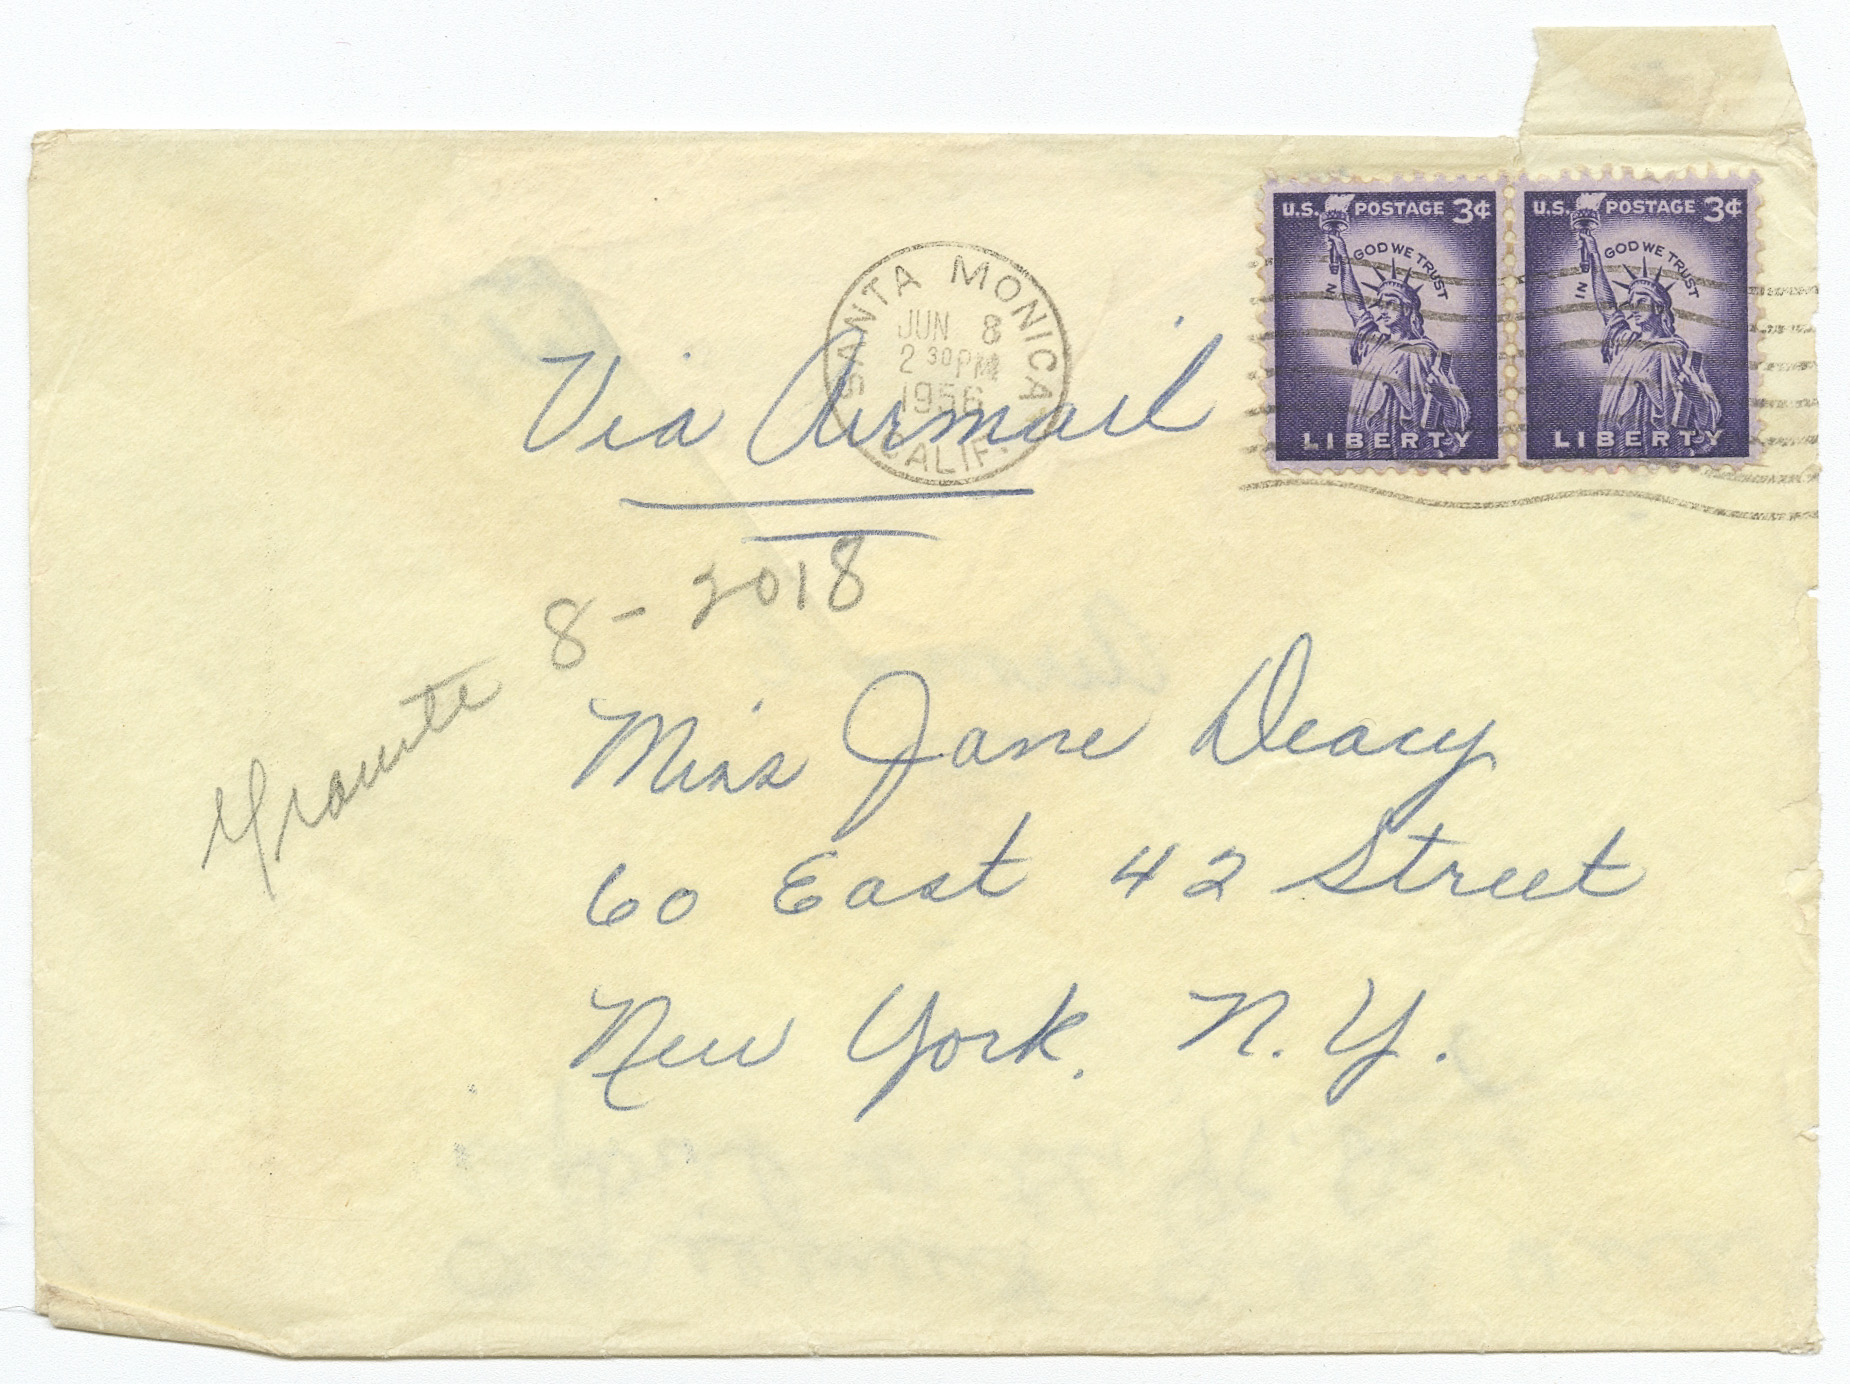 U.S. POSTAGE 3¢
IN GOD WE TRUST
LIBERTY
U.S. POSTAGE 3¢
IN GOD WE TRUST
LIBERTY
SANTA MONICA
JUN 8
2 30 PM
1956
CALIF.
Via Airmail
Granite 8-2018
Miss Jane Deacy
60 East 42 Street
New York, N.Y.